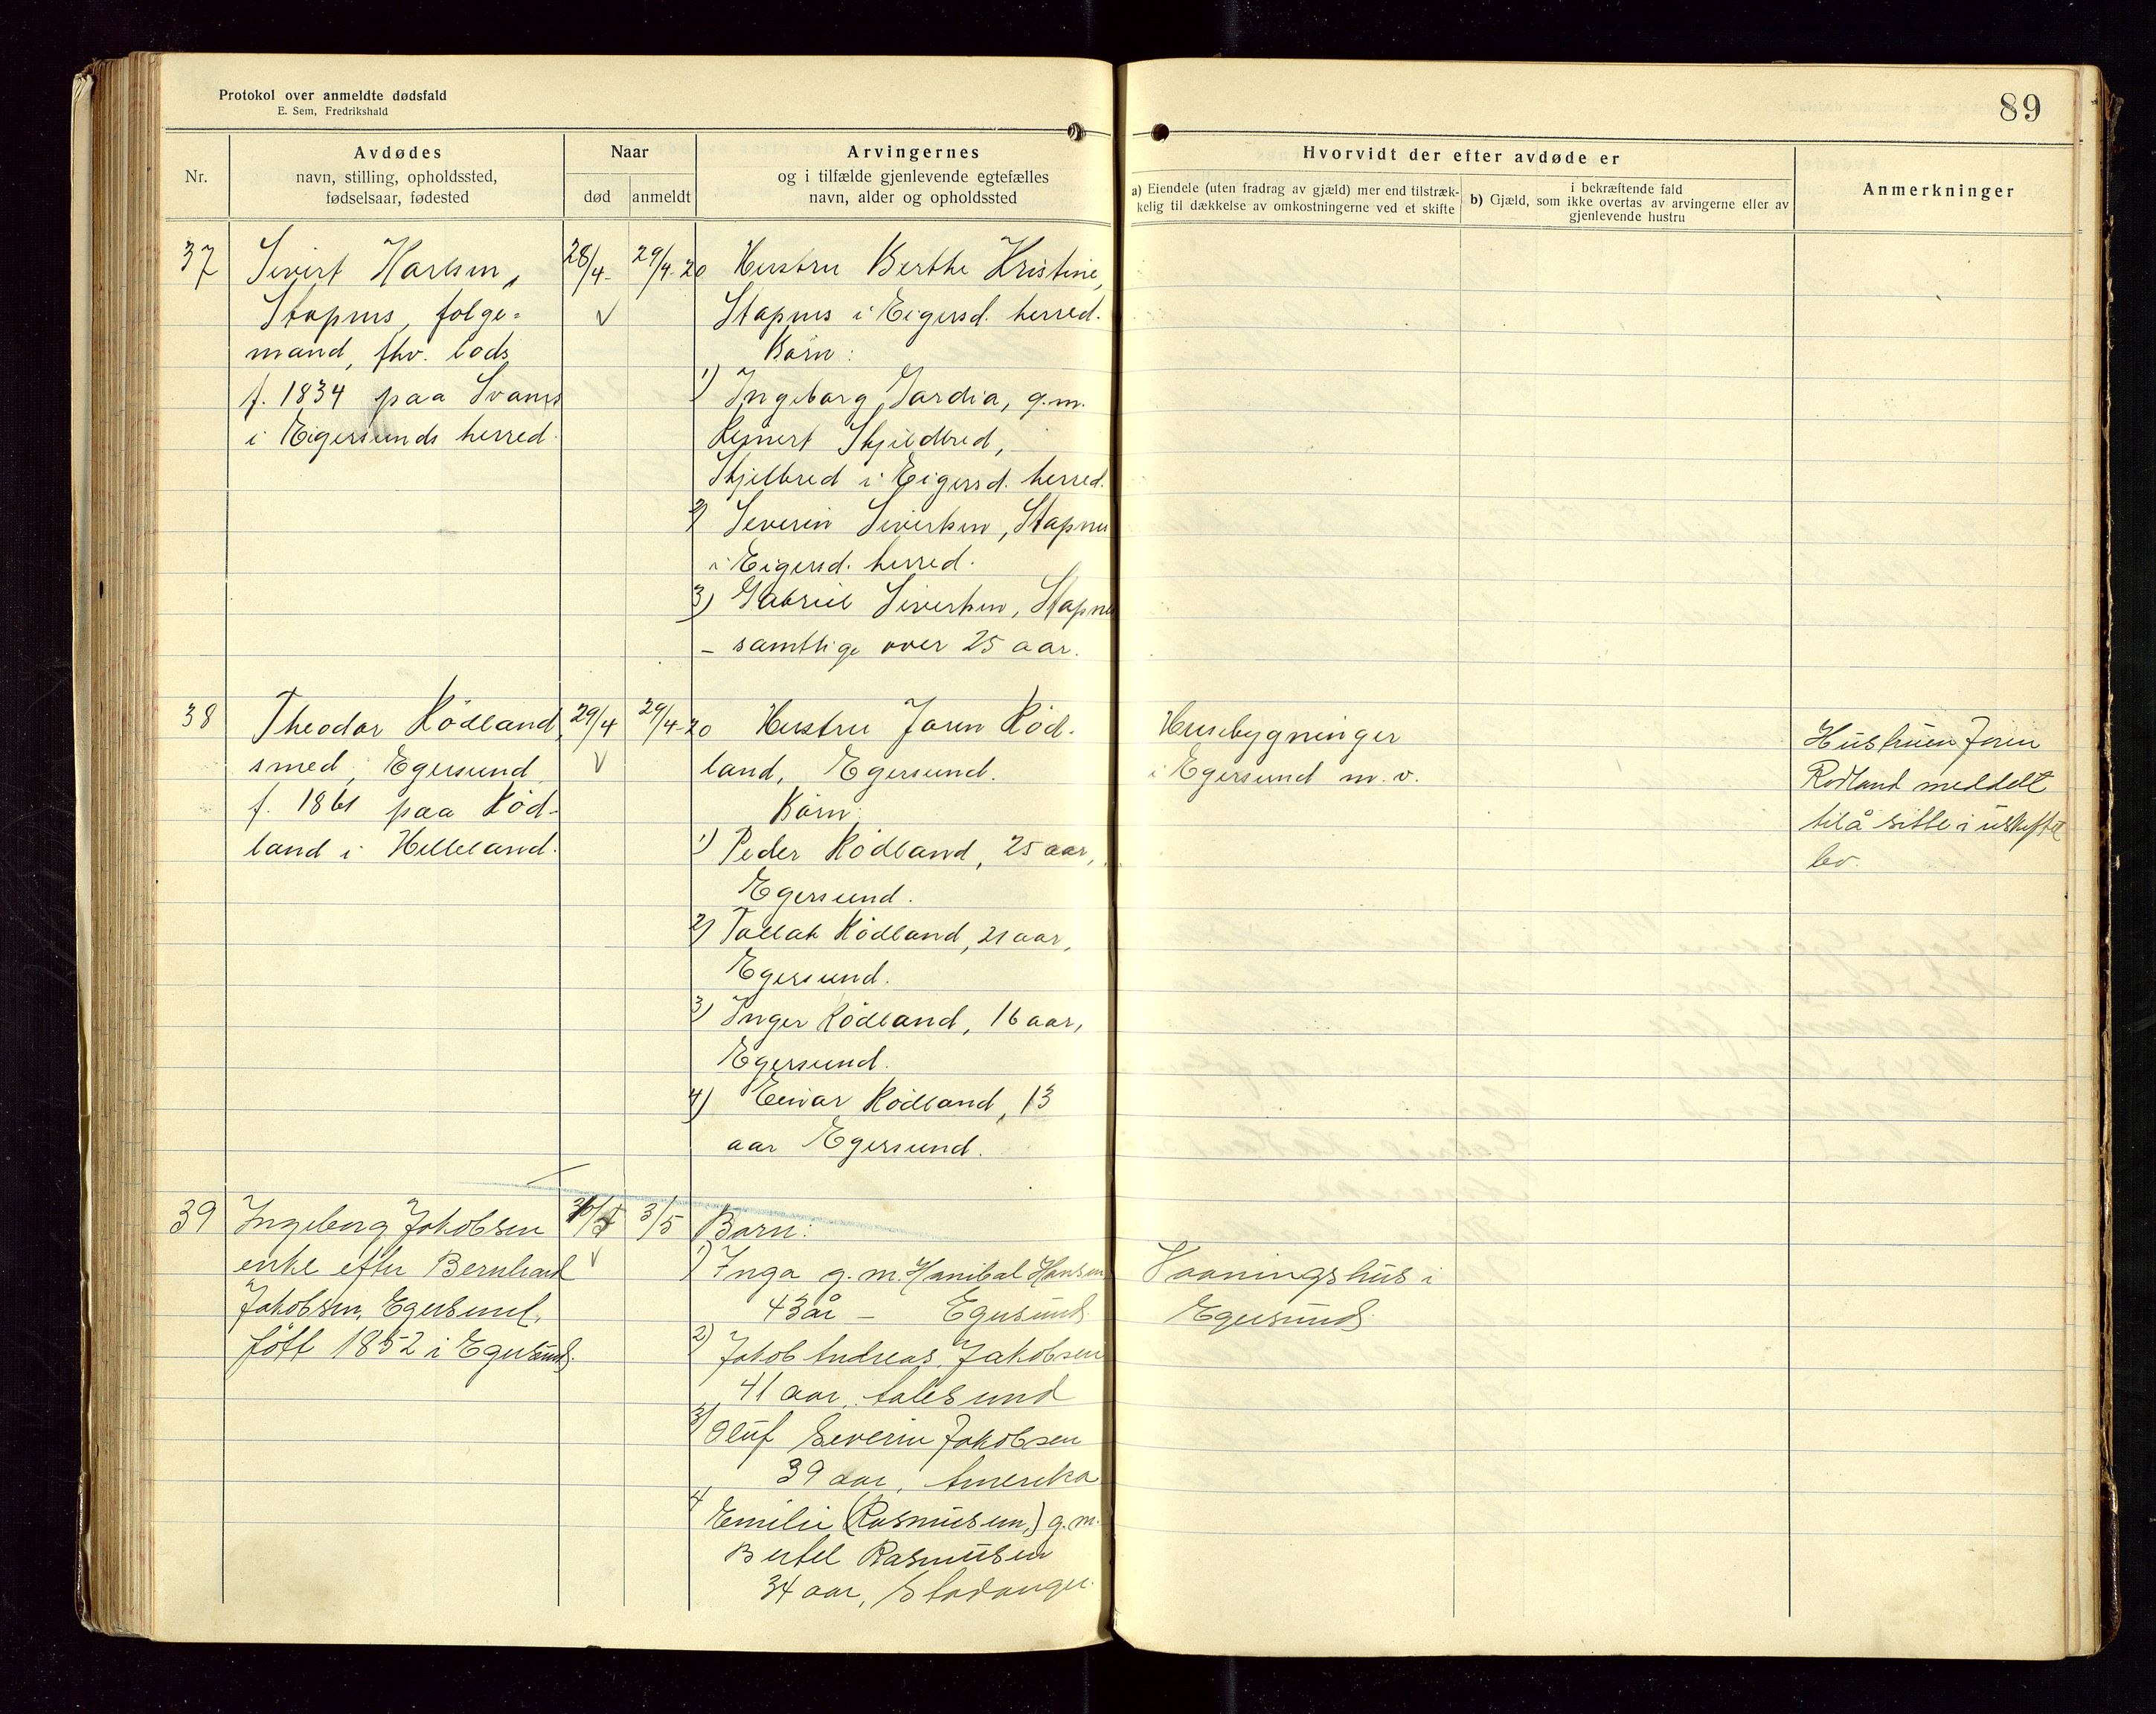 Protokol over anmeldte dødsfald
E. Sem, Fredrikshald
89
Nr.
Avdødes
navn, stilling, opholdssted,
fødselsaar, fødested
Naar
død
anmeldt
Arvingernes
og i tilfælde gjenlevende egtefælles
navn, alder og opholdssted
Hvorvidt der efter avdøde er
a) Eiendele (uten fradrag av gjæld) mer end tilstræk-
kelig til dækkelse av omkostningerne ved et skifte
i bekræftende fald
b) Gjæld, som ikke overtas av arvingerne eller av
gjenlevende hustru
Anmerkninger
37
Sivert
Stapnes, følge=
mand, fhv. lods
f. 1834 paa Svanes
i Eigersunds herred.
28/4
29/4-20
Hustru Berthe Kristine,
Stapnes i Eigersd. herred.
Børn:
1) Ingeborg Gardia, g.m.
Reinert Skjelbred,
Skjelbred i Eigersd. herred.
2) Severin Sivertsen, Stapnes
i Eigersd. herred.
3) Gabriel Sivertsen, Stapnes
- samtlige over 25 aar.
38
Theodor Rödland,
smed, Egersund
f. 1861 paa Rød-
land i Helleland.
29/4
29/4-20
Hustru Joren Rød-
land, Egersund.
Børn:
1) Peder Rödland, 25 aar,
Egersund.
2) Tallak Rödland, 21 aar,
Egersund.
3) Inger Rödland, 16 aar,
Egersund.
4) Einar Rödland, 13
aar Egersund.
Husebygninger
i Egersund m.v.
Hustruen Joren
Rødland meddelt
til å sitte i uskiftet
bo.
39
Ingeborg Jakobsen
enke efter Bernhard
Jakobsen, Egersund,
født 1852 i Egersund.
3/5
Barn:
1) Inga g.m. Hanibal Hansen
43 år - Egersund.
2) Jakob Andreas Jakobsen
41 aar, Aalesund
3) Oluf Severin Jakobsen
39 aar, Amerika
4) Emilie (Rasmusen,) g.m.
Bertel Rasmusen
34 aar, Stavanger.
Vaaningshus i
Egersund.